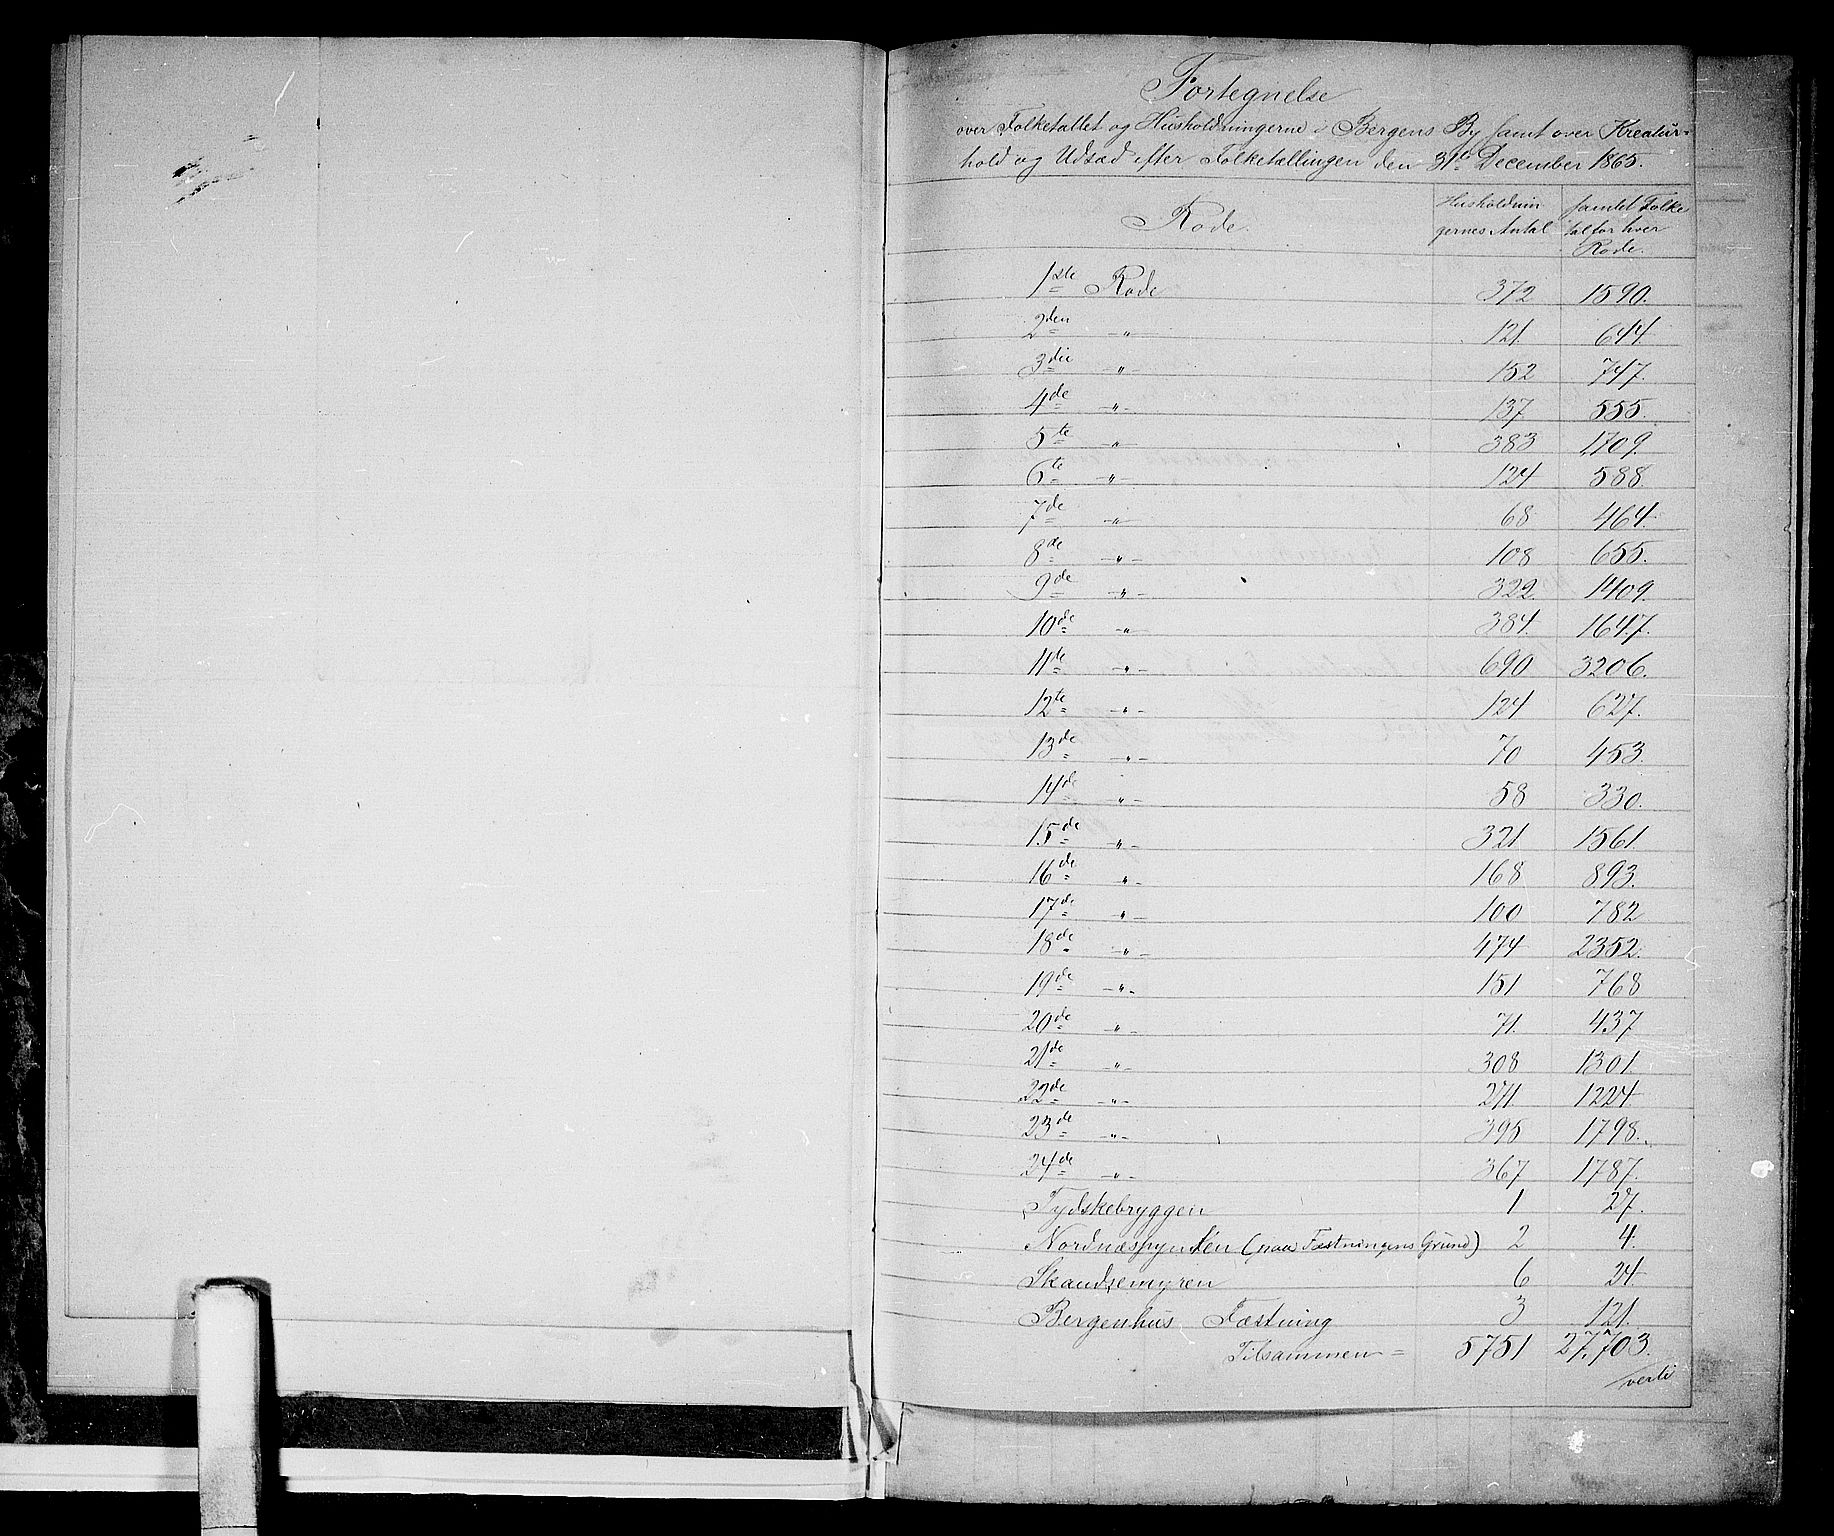 Fortegnelse
over Folketallet og Husholdningerne i Bergens By samt over Kreatur-
hold og Udsæd efter Folketællingen den 31te December 1865.
Rode. Husholdnin Samlet Folke
gernes Antal tal for hver
Rode.
1ste Rode 372 1590.
2den -"- 121. 644.
3die -"- 152 747.
4de -"- 137. 555.
5te -"- 383 1709.
6te -"- 124 588.
7de -"- 68 464.
8de -"- 108 655.
9de -"- 322. 1409.
10de -"- 384. 1647.
11de -"- 690 3206.
12te -"- 124 627.
13de -"- 70 453.
14de -"- 58 330.
15de -"- 321 1561.
16de -"- 168 893.
17de -"- 100 782
18de -"- 474 2352.
19de -"- 151 768
20de -"- 71. 437
21de -"- 308 1301.
22de -"- 271. 1224
23de -"- 395 1798.
24de -"- 367 1787.
Tydskebryggen 1 27.
Nordnæspynten (paa Fæstningens Grund) 2 4.
Skandsemyren 6 24
Bergenhus Fæstning 3 121.
Tilsammen = 5751 27,703.
verte